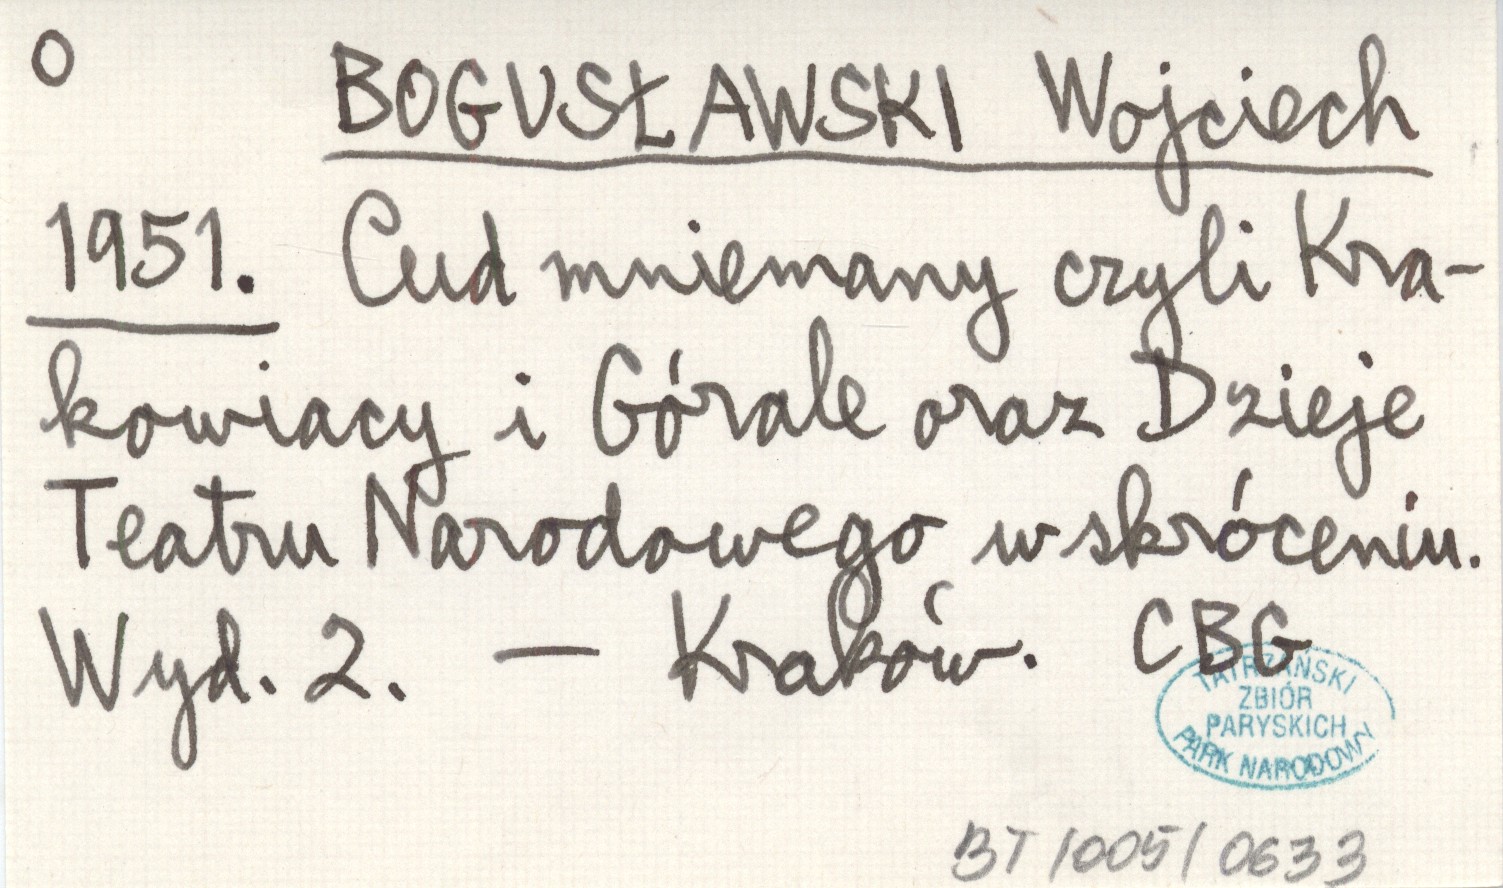 O BOGUSŁAWSKI Wojciech
1951. Cud mniemany czyli Kra-
kowiacy i Górale oraz Dzieje
Teatru Narodowego w skróceniu.
Wyd. 2. — Kraków. CBG
TATRZAŃSKI
ZBIÓR
PARYSKICH
PARK NARODOWY
BT /005/ 0633